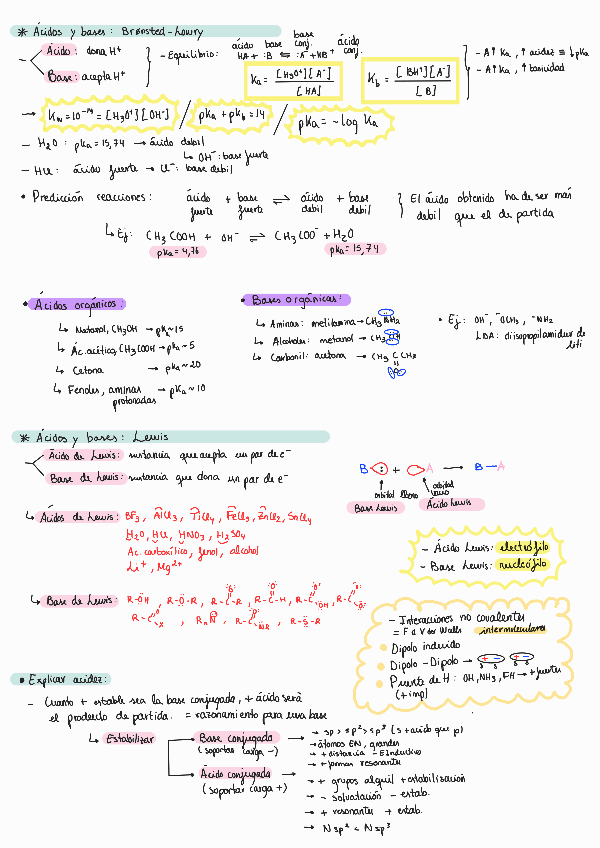 * Ácidos y bases: Brønsted-Lowry
Ácido: dona H⁺
Base: acepta H⁺
- Equilibrio:
ácido base base conj. ácido conj.
HA + :B ⇌ :A⁻ + HB⁺
Ka = [H₃O⁺][A⁻] / [HA]
Kb = [BH⁺][A⁻] / [B]
- A↑Ka, ↑ acidez ≡ ↓pKa
- A↑Ka, ↑ basicidad
→ Kw = 10⁻¹⁴ = [H₃O⁺][OH⁻] / pKa + pKb = 14 / pKa = -log Ka
- H₂O: pKa = 15,74 → ácido debil
↳ OH⁻: base fuerte
- HCl: ácido fuerte → Cl⁻: base debil
• Predicción reacciones: ácido fuerte + base fuerte ⇌ ácido debil + base debil } El ácido obtenido ha de ser más debil que el de partida
↳ Ej: CH₃COOH + OH⁻ ⇌ CH₃COO⁻ + H₂O
pKa = 4,76 pKa = 15,74
• Ácidos orgánicos:
↳ Metanol, CH₃OH → pKa ~ 15
↳ Ác. acético, CH₃COOH → pKa ~ 5
↳ Cetona → pKa ~ 20
↳ Fenoles, aminas protonadas → pKa ~ 10
• Bases orgánicas:
↳ Aminas: metilamina → CH₃NH₂
↳ Alcoholes: metanol → CH₃OH
↳ Carbonil: acetona → CH₃CCH₃
O
• Ej: OH⁻, ⁻OCH₃, ⁻NH₂
LDA: diisopropilamiduro de liti
* Ácidos y bases: Lewis
Ácido de Lewis: sustancia que acepta un par de e⁻
Base de Lewis: sustancia que dona un par de e⁻
B : + A → B-A
orbital lleno orbital vacío
Base Lewis Ácido Lewis
↳ Ácidos de Lewis: BF₃, AlCl₃, TiCl₄, FeCl₃, ZnCl₂, SnCl₄
H₂O, HCl, HNO₃, H₂SO₄
Ac. carboxílico, fenol, alcohol
Li⁺, Mg²⁺
- Ácido Lewis: electrófilo
- Base Lewis: nucleófilo
↳ Base de Lewis: R-OH, R-O-R, R-C-R, R-C-H, R-C-OH, R-C-O
R-C-X, R₃N, R-C-NR, R-S-R
- Interacciones no covalentes
= F d V der Walls intermoleculares
• Dipolo inducido
• Dipolo-Dipolo → + - + -
• Puente de H: OH, NH₃, FH → + fuertes
(+ imp)
• Explicar acidez:
- Cuanto + estable sea la base conjugada, + ácido será
el producto de partida. = razonamiento para una base
↳ Estabilizar
Base conjugada
(soportar carga -)
→ sp > sp² > sp³ (s + ácido que p)
→ átomos EN, grandes
→ + distancia - E Inductivo
→ + formas resonantes
Ácido conjugada
(soportar carga +)
→ + grupos alquil + estabilización
→ - solvatación - estab.
→ + resonantes + estab.
→ N sp² < N sp³